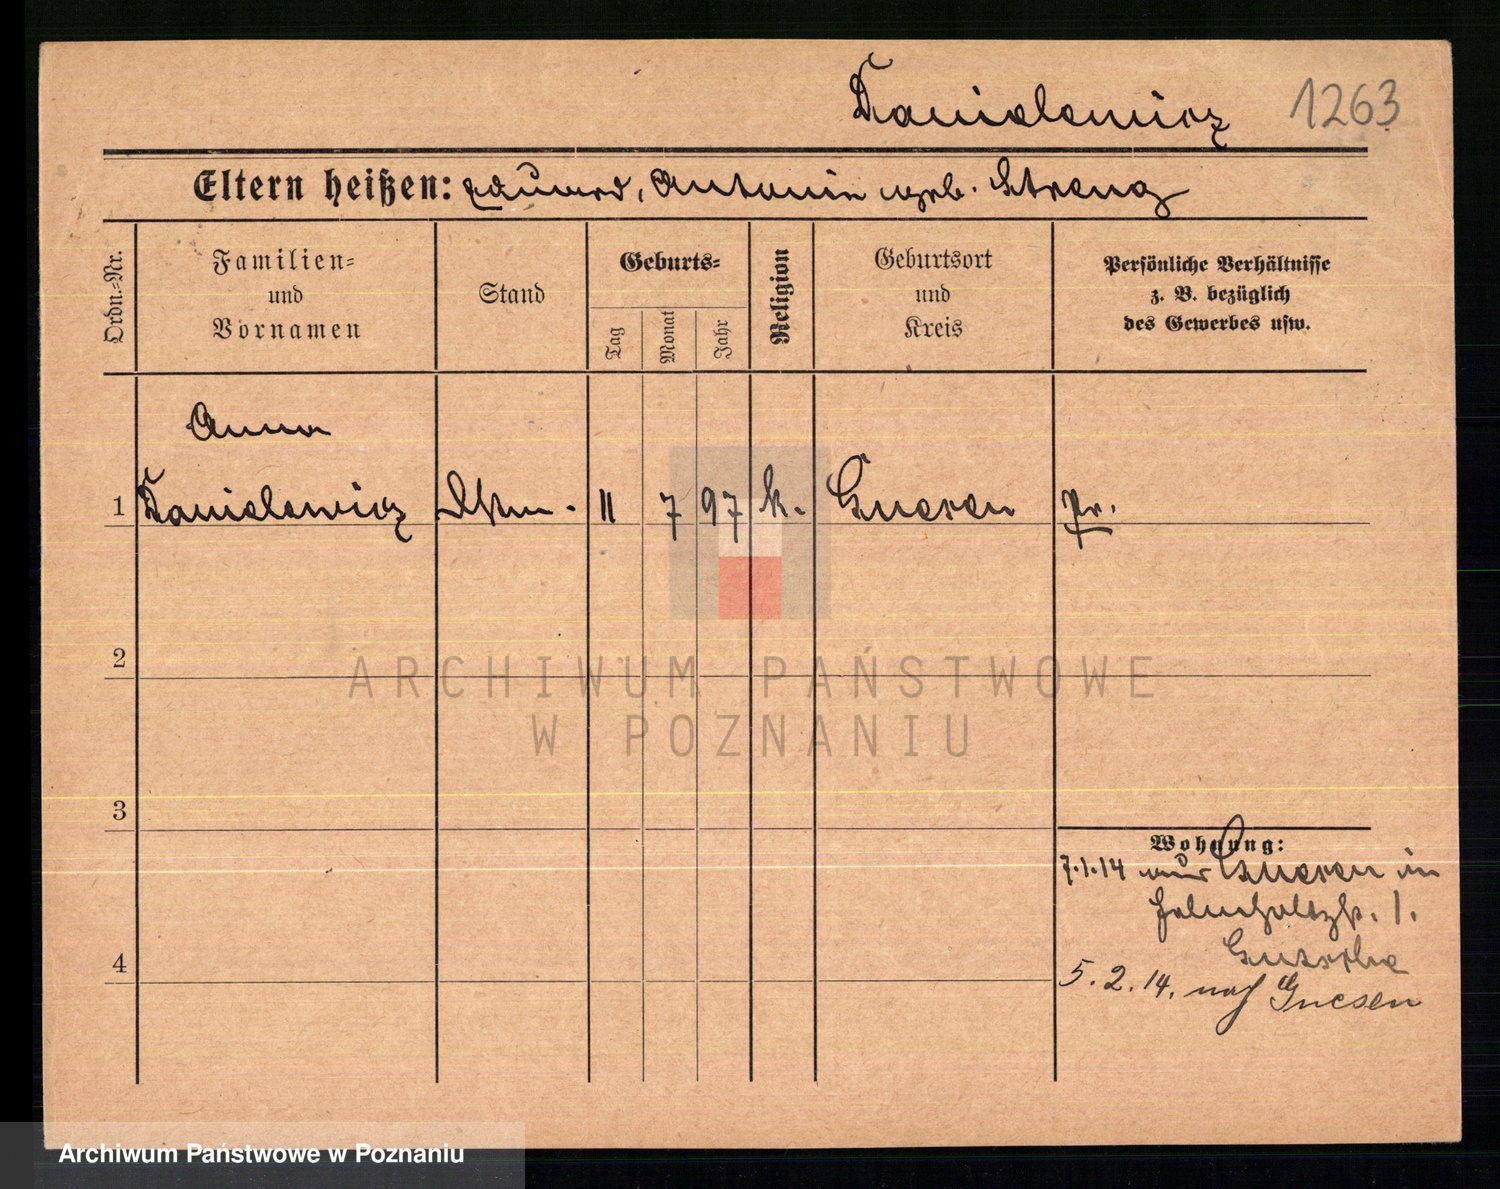 Danielewicz 1263
Eltern heißen: Eduard, Antonie geb. Streng
Ordn.=Nr.
Familien=
und
Vornamen
Stand
Geburts=
Tag
Monat
Jahr
Religion
Geburtsort
und
Kreis
Persönliche Verhältnisse
z. B. bezüglich
des Gewerbes usw.
Anna
1 Danielewicz 11 7 97 k. Gnesen Pr.
2
ARCHIWUM PAŃSTWOWE
W POZNANIU
3
Wohnung:
7.1.14 Gnesen in
1.
4
5.2.14. nach Gnesen
Archiwum Państwowe w Poznaniu